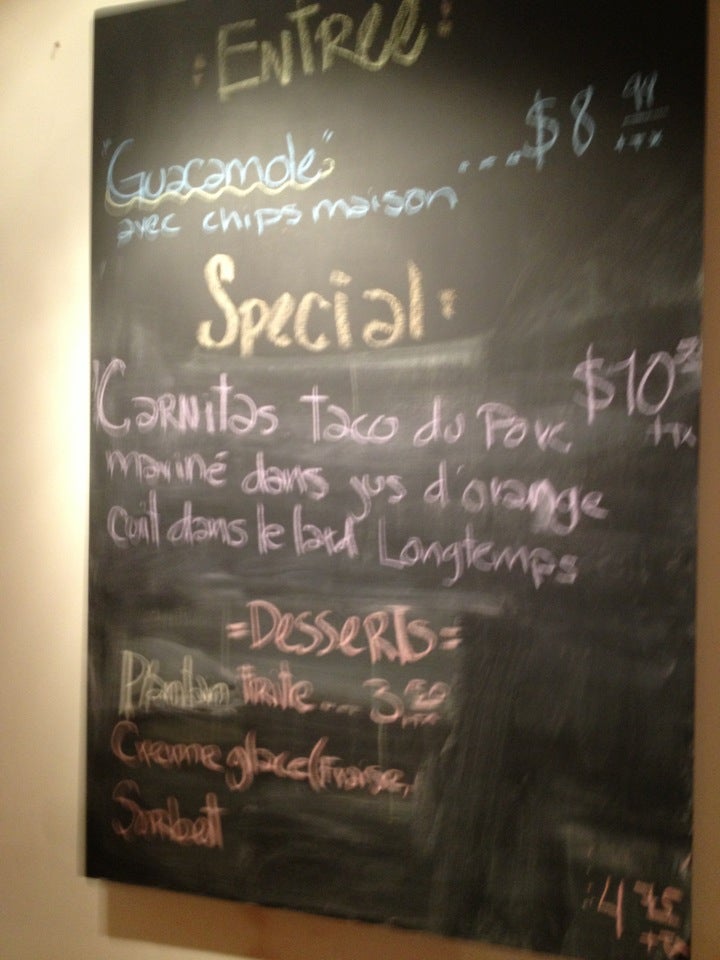 : Entree :
"Guacamole" ...$8
avec chips maison
Special :
"Carnitas Taco du Porc $10
mariné dans jus d'orange
Cuit dans le lard Longtemps
=Desserts=
Plantain frite... 3.50
Creme glace (Fraise,
Sorbett
4 75